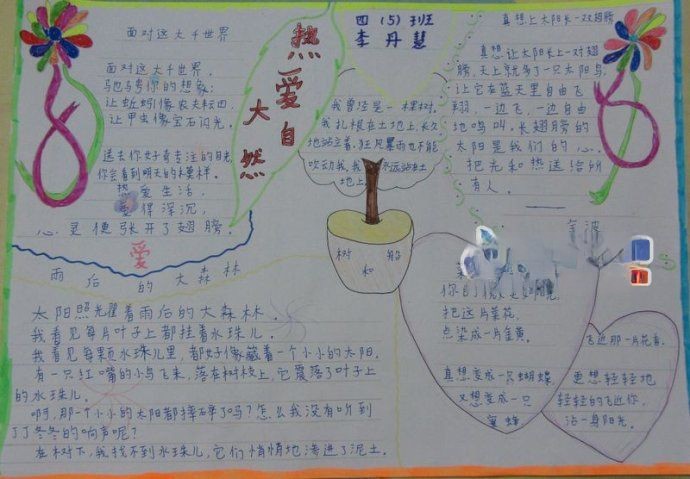 面对这大千世界
面对这大千世界，
驰骋你的想象：
让蚯蚓像农夫耘田，
让甲虫像宝石闪光。
送去你好奇专注的目光，
你会看到明天的模样。
热爱生活，
爱得深沉，
心灵便张开了翅膀。
热爱大自然
四（5）班
李丹慧
我曾经是一棵树，
我扎根在土地上，长久
地站立着。狂风暴雨也不能
吹动我，我永远站在土
地上。
树和船
真想让太阳长一双翅膀
真想让太阳长上一对翅
膀，天上就多了一只太阳鸟，
让它在蓝天里自由飞
翔，一边飞，一边自由
地鸣叫。长翅膀的
太阳是我们的心。
把光和热送给所
有人。
爱
雨后的大森林
太阳照光耀着雨后的大森林。
我看见每片叶子上都挂着水珠儿。
我看见每颗水珠儿里，都好像藏着一个小小的太阳。
有一只红嘴的小鸟飞来，落在树枝上，它震落了叶子上
的水珠儿。
啊，那一个小小的太阳都摔碎了吗？怎么我没有听到
丁丁冬冬的响声呢？
在树下，我找不到水珠儿，它们悄悄地渗进了泥土。
把这片菜花，
点染成一片金黄。
真想变成一只蝴蝶，
又想变成一只
蜜蜂
飞近那一片花香。
更想轻轻地
轻轻的飞近你，
沾一身阳光。